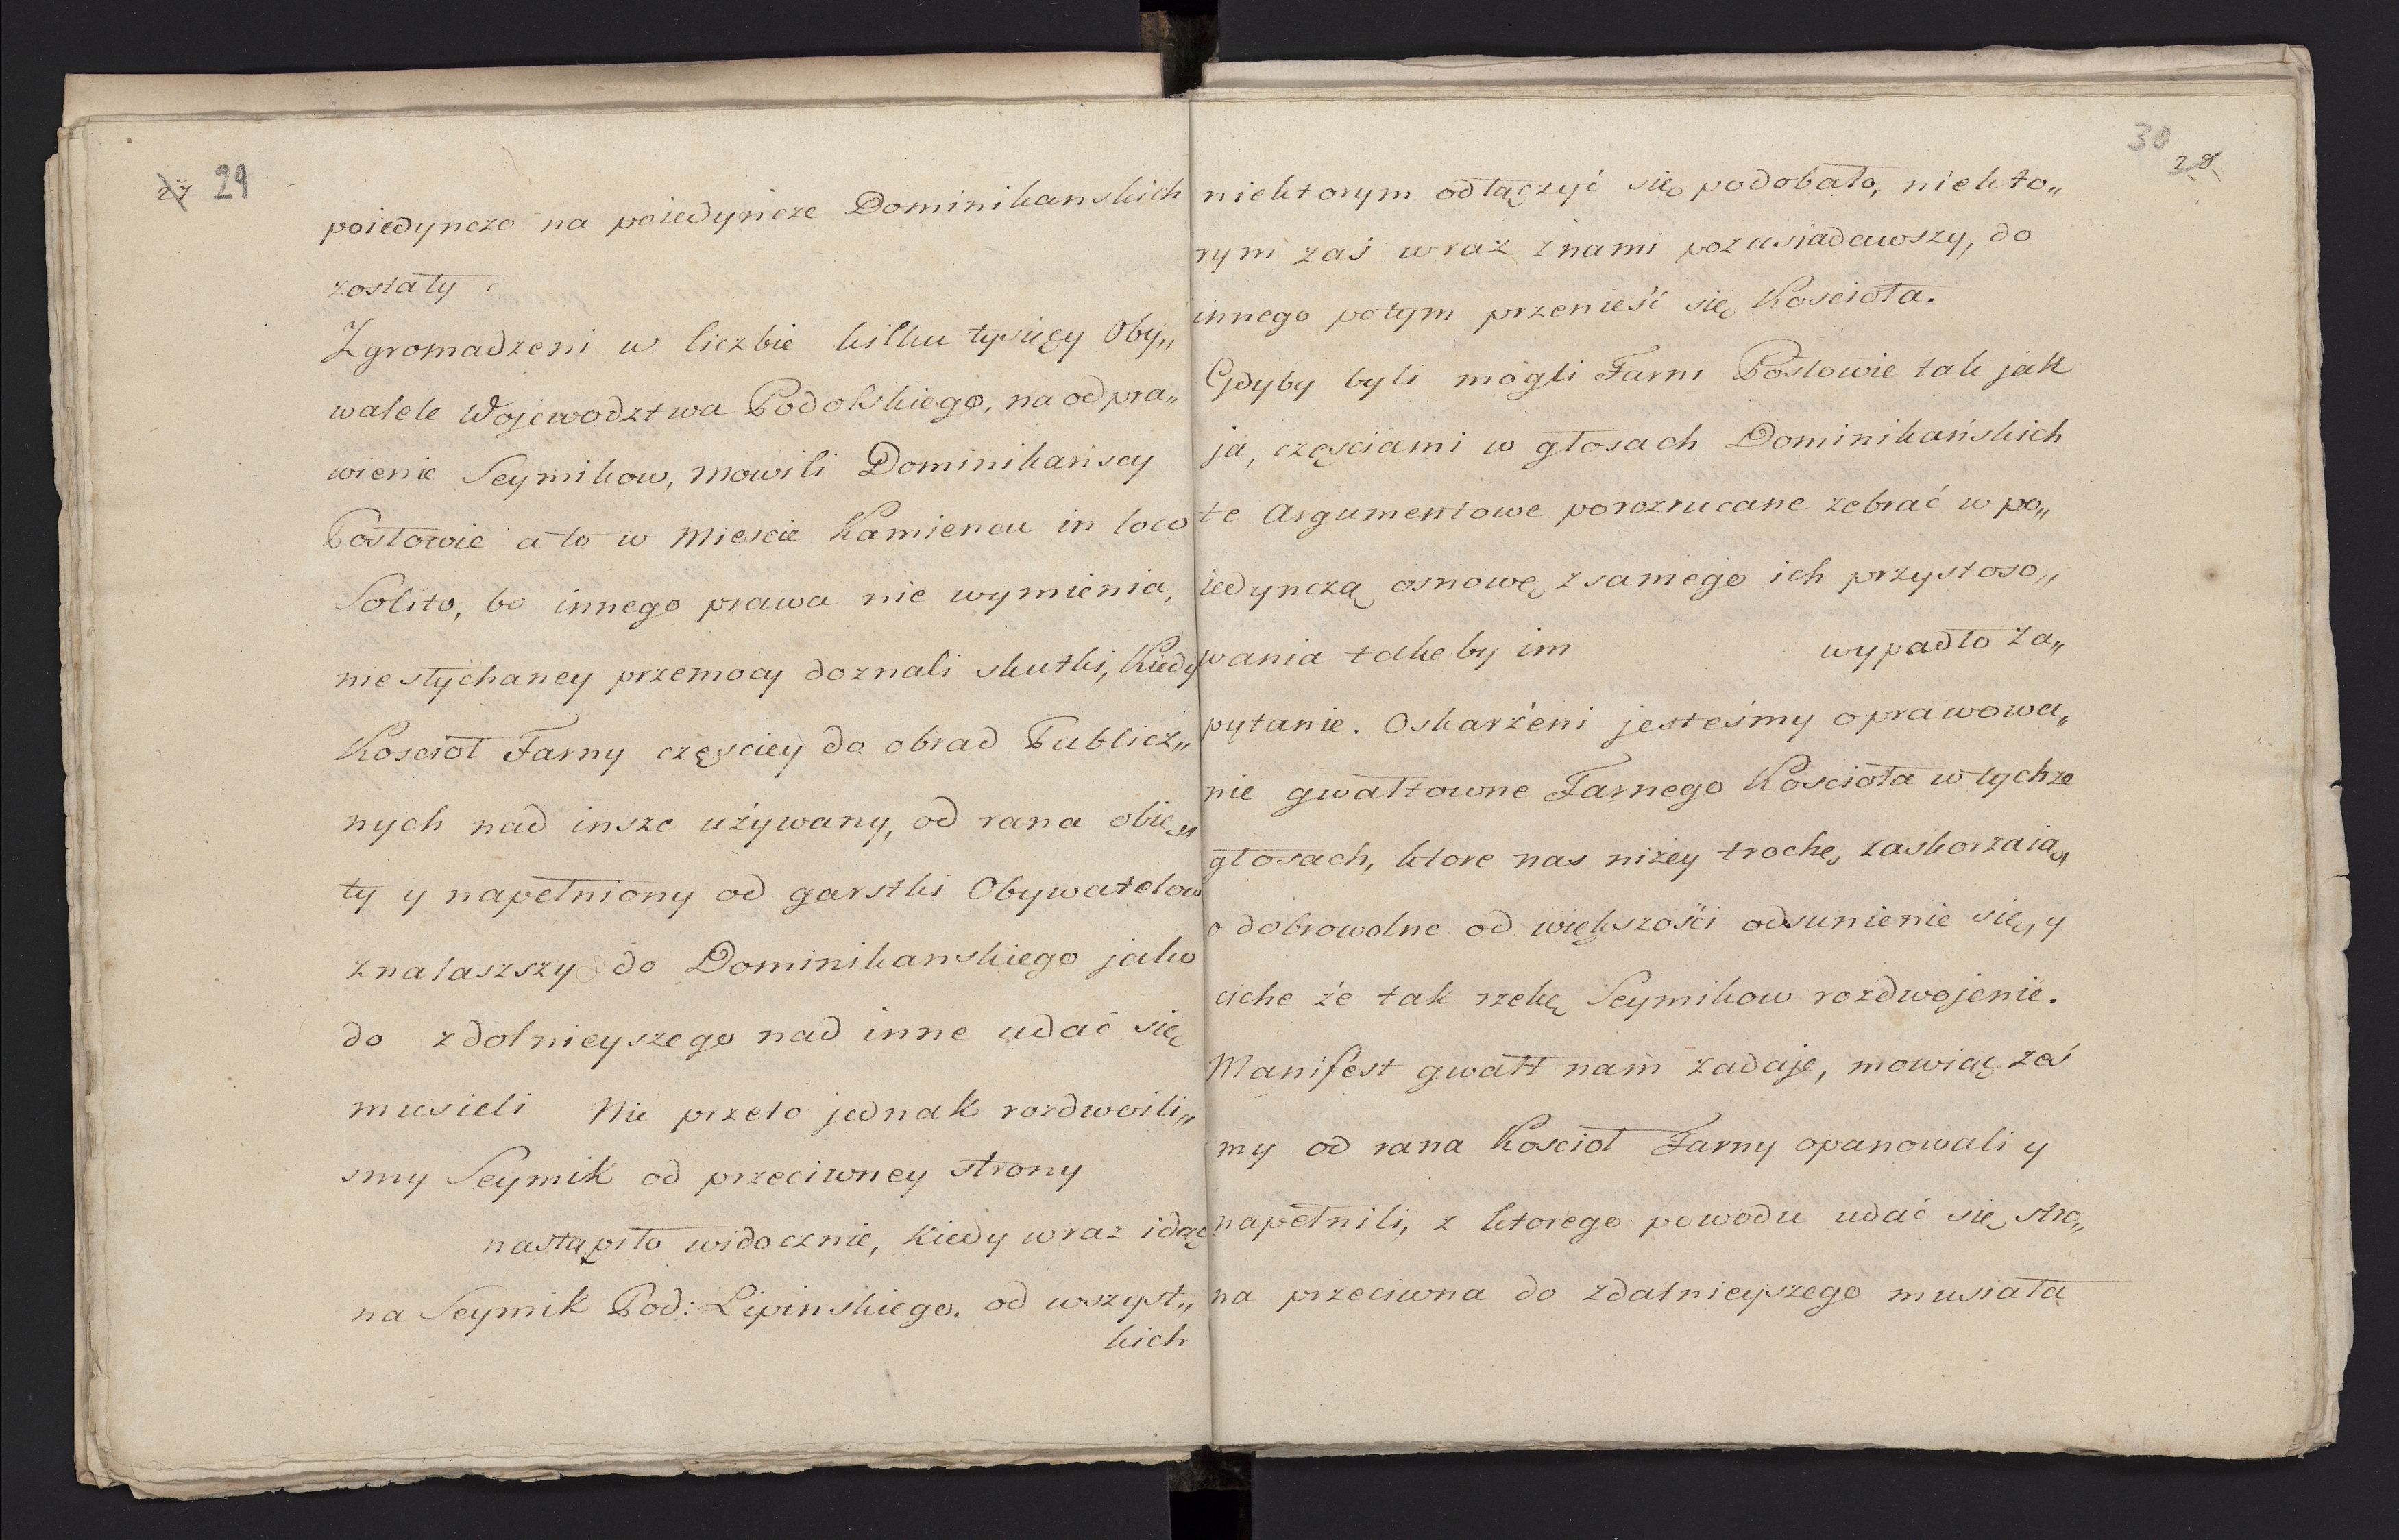 27 29
poiedynczo na poiedyncze Dominikanskich
zostały
Zgromadzeni w liczbie kilku tysięcy Oby„
watele Wojewodztwa Podolskiego, na odpra„
wienie Seymikow, mowili Dominikańscy
Posłowie a to w Miescie Kamiencu in loco
Solito, bo innego prawa nie wymienia,
niesłychaney przemocy doznali skutki, Kiedy
Koscioł Farny częsciey do obrad Publicz„
nych nad insze używany, od rana obię„
ty y napełniony od garstki Obywatelow
znalaszszy do Dominikanskiego jako
do zdolnieyszego nad inne udać się
musieli Nie przeto jednak rozdwoili„
smy Seymik od przeciwney strony
nastąpiło widocznie, Kiedy wraz idąc
na Seymik Pod: Lipinskiego, od wszyst„
kich
30 28
niektorym odłączyć się podobało, niekto„
rym zaś wraz z nami pozasiadawszy, do
innego potym przenieść się Koscioła.
Gdyby byli mogli Farni Posłowie tak jak
ja, częsciami w głosach Dominikańskich
te Argumentowe porozrucane zebrać w po„
iedynczą osnowę z samego ich przystoso„
wania takeby im wypadło za„
pytanie. Oskarżeni jesteśmy o prawowa„
nie gwałtowne Farnego Koscioła w tychze
głosach, ktore nas niżey trochę zaskorzaią„
o dobrowolne od większości odsunienie się, y
ciche że tak rzekę Seymikow rozdwojenie.
Manifest gwałt nam zadaje, mowiąc żeś
my od rana Kościoł Farny opanowali y
napełnili, z ktorego powodu udać się stro„
na przeciwna do zdatnieyszego musiała